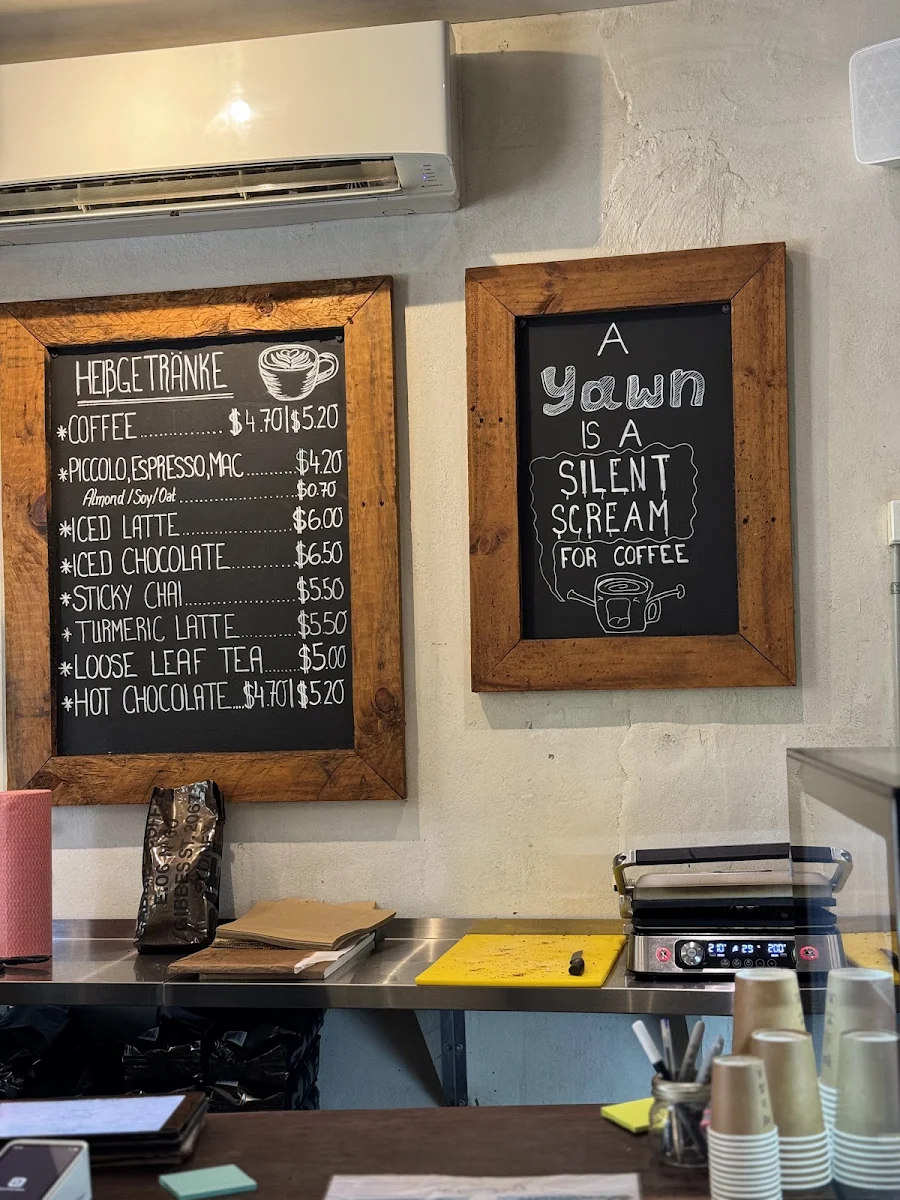 HEIßGETRÄNKE
*COFFEE.............. $4.70|$5.20
*PICCOLO,ESPRESSO,MAC..........$4.20
Almond/Soy/Oat......................$0.70
*ICED LATTE.......................$6.00
*ICED CHOCOLATE.............$6.50
*STICKY CHAI.....................$5.50
*TURMERIC LATTE............$5.50
*LOOSE LEAF TEA.......$5.00
*HOT CHOCOLATE....$4.70|$5.20
A
yawn
IS A
SILENT
SCREAM
FOR COFFEE
GIBBES ST
210 29 200